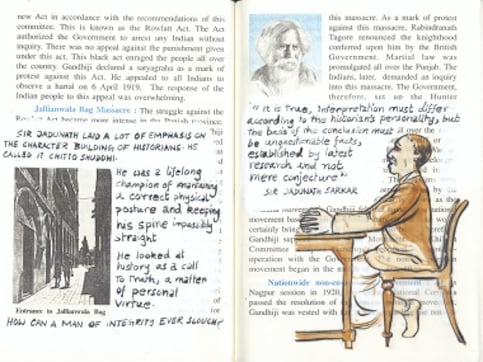 new Act in accordance with the recommendations of this
committee. This is known as the Rowlatt Act. The Act
authorized the Government to arrest any Indian without
inquiry. There was no appeal against the punishment given
under this act. This black act enraged the people all over
the country. Gandhiji declared a satyagraha as a mark of
protest against this Act. He appealed to all Indians to
observe a hartal on 6 April 1919. The response of the
Indian people to this appeal was overwhelming.
Jallianwala Bag Massacre : The struggle against the
Act became more intense in the province.
SIR JADUNATH LAID A LOT OF EMPHASIS ON
THE CHARACTER BUILDING OF HISTORIANS. HE
CALLED IT CHITTO SHUDDHI.
He was a lifelong
champion of maintaining
a correct physical
posture and keeping
his spine impossibly
straight
He looked at
history as a call
to truth, a matter
of personal
virtue.
Entrance to Jallianwala Bag
HOW CAN A MAN OF INTEGRITY EVER SLOUCH?
this massacre. As a mark of protest
against this massacre, Rabindranath
Tagore renounced the knighthood
conferred upon him by the British
Government. Martial law was
promulgated all over the Punjab. The
Indians, later, demanded an inquiry
into this massacre. The Government,
therefore, set up the Hunter
"It is true, interpretation must differ
according to the historian's personality, but
the basis of the conclusion must
be unquestionable facts,
established by latest
research and not
mere conjecture"
SIR JADUNATH SARKAR
Gandhiji
movement
certainly bring
Gandhiji
Committee
and
movement began in the
Nationwide
Nagpur session in 1920,
passed the resolution of
Gandhiji was vested with